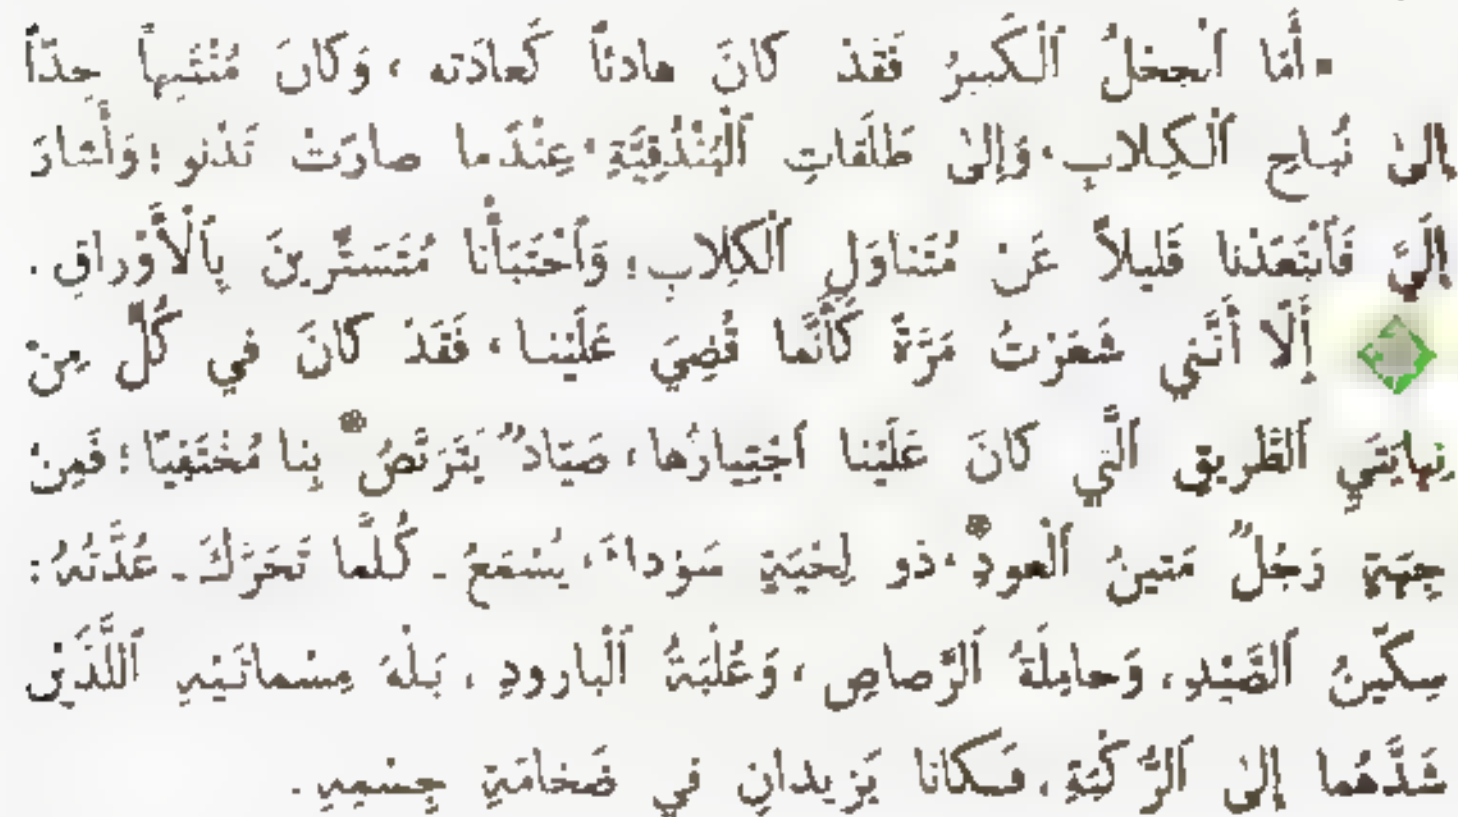 أَمَّا ٱلْجَحْلُ ٱلْكَبيرُ فَقَدْ كانَ هادِئاً كَعادَتِه ، وَكانَ مُنْتَبِهاً جِدّاً
إِلىٰ نُباحِ ٱلْكِلابِ ، وَإِلىٰ طَلَقاتِ ٱلْبُنْدُقِيَّةِ ، عِنْدَما صارَتْ تَدْنو ؛ وَأَشارَ
إِلَيَّ فَٱبْتَعَدْنا قَليلاً عَنْ مُتَناوَلِ ٱلْكِلابِ ؛ وَٱخْتَبَأْنا مُتَسَتِّرينَ بِٱلْأَوْراقِ .
إِلَّا أَنَّني شَعَرْتُ مَرَّةً كَأَنَّما قُضِيَ عَلَيْنا ، فَقَدْ كانَ في كُلٍّ مِنْ
نِهايَتَيِ ٱلطَّريقِ ٱلَّتي كانَ عَلَيْنا ٱجْتِيازُها ، صَيّادٌ يَتَرَبَّصُ* بِنا مُخْتَفِيًا ؛ فَمِنْ
جِهَةٍ رَجُلٌ مَتينُ ٱلْعودِ* ، ذو لِحْيَةٍ سَوْداءَ ، يُسْمَعُ - كُلَّما تَحَرَّكَ - عُدَّتُهُ :
سِكّينُ ٱلصَّيْدِ ، وَحامِلَةُ ٱلرَّصاصِ ، وَعُلْبَةُ ٱلْبارودِ ، بَلْهَ مِسْماتَيْهِ ٱللَّذَيْنِ
شَدَّهُما إِلىٰ ٱلرُّكْبَةِ ، فَكانا يَزيدانِ في ضَخامَةِ جِسْمِهِ .